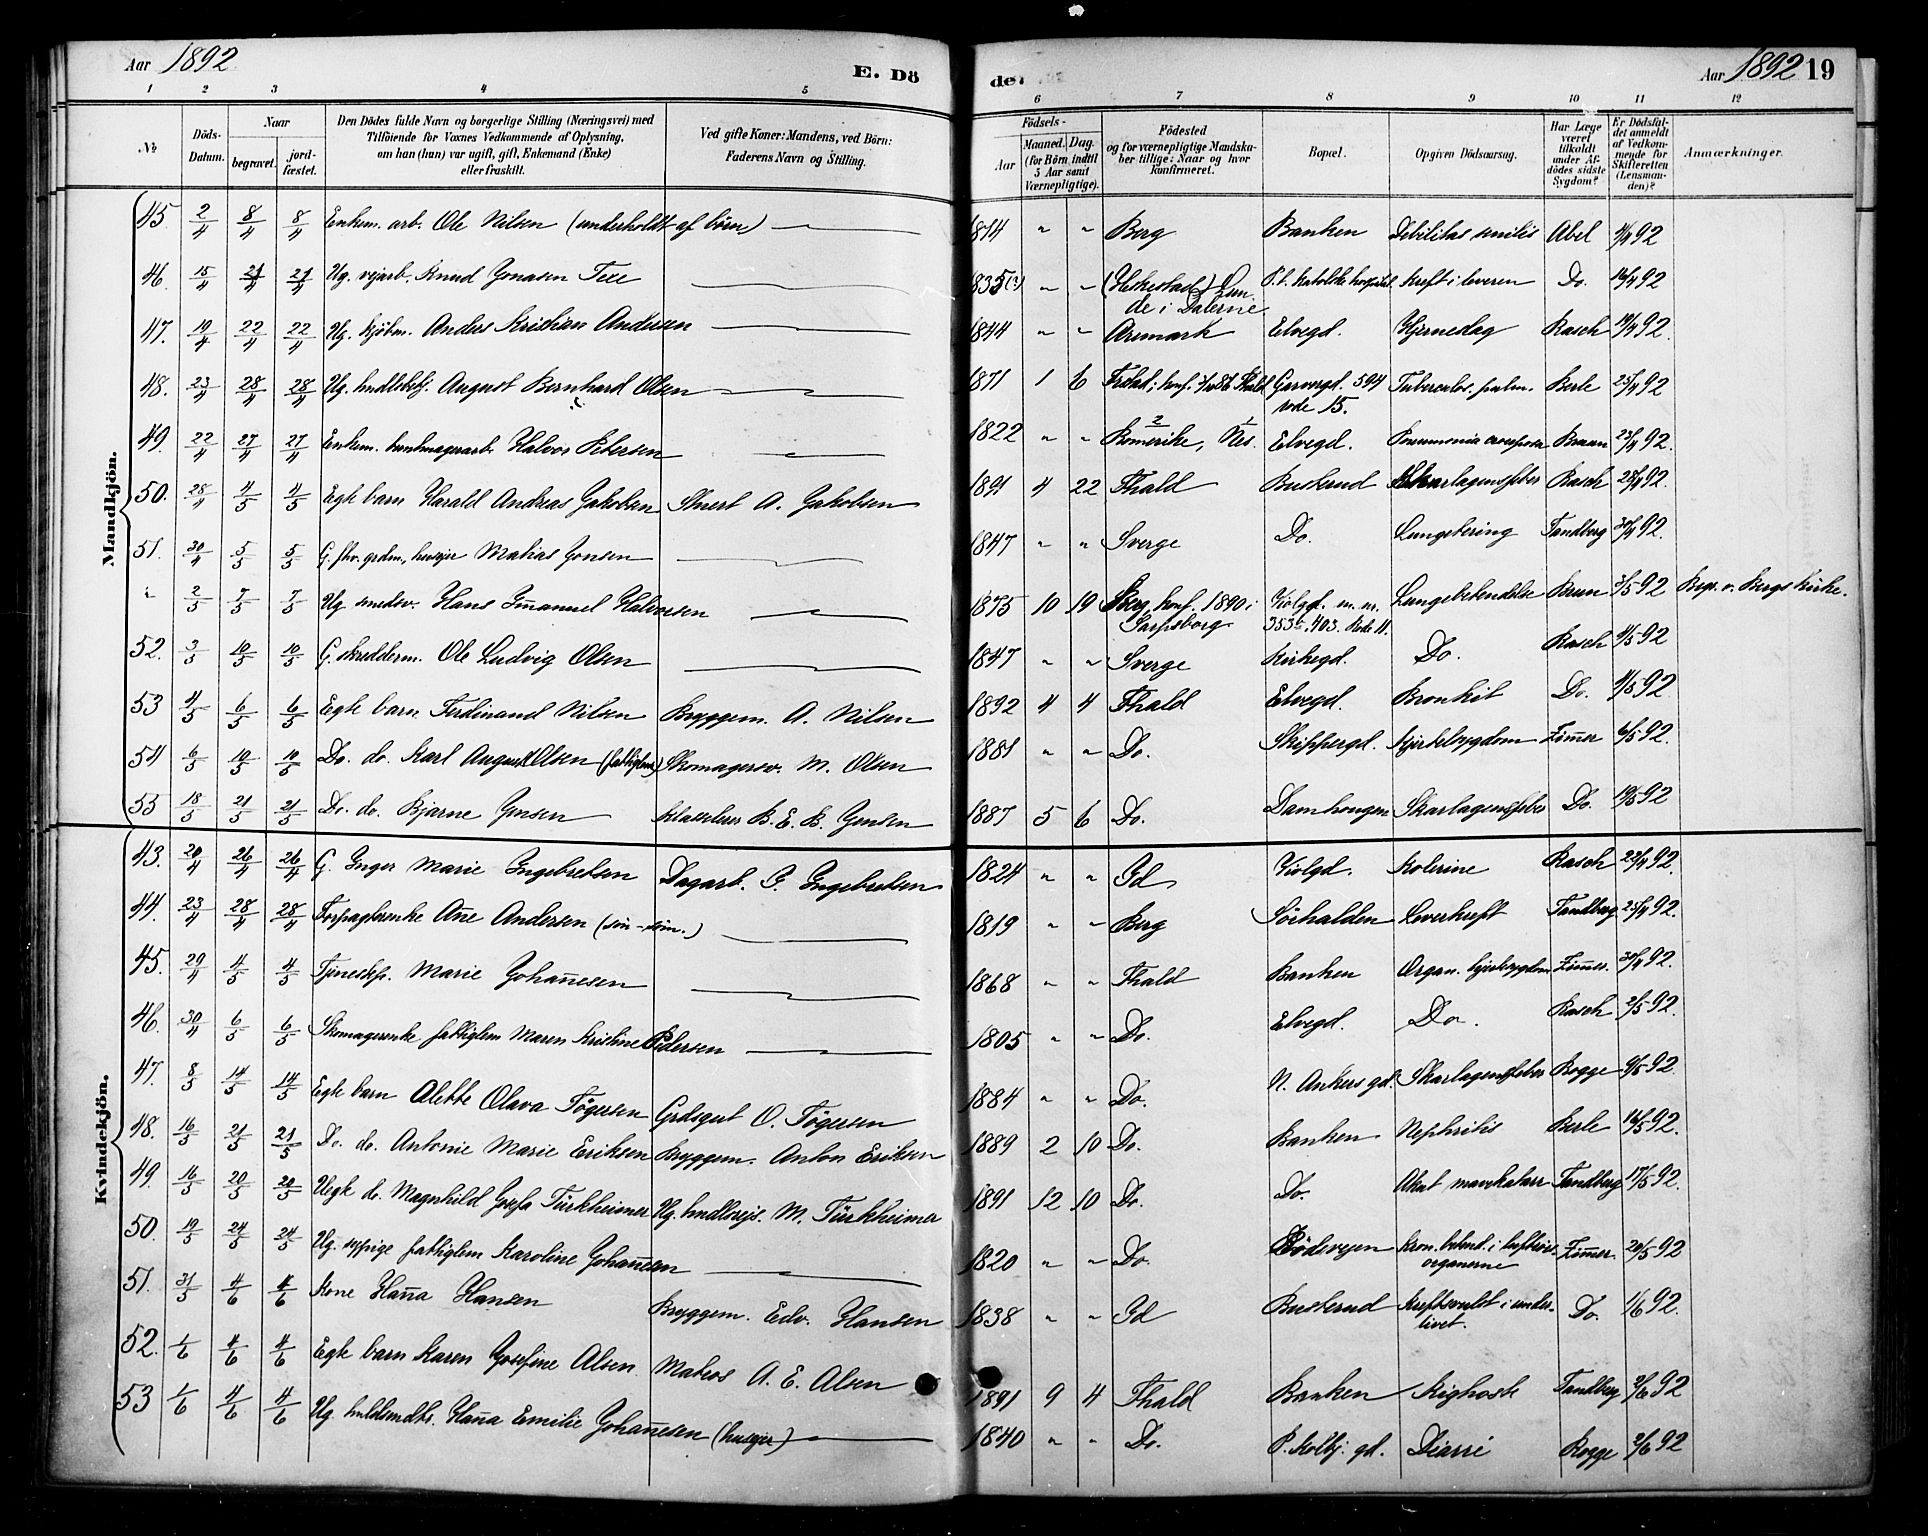 Aar 1892
E. Dö
de
Aar 1892 19
1 2 3 4 5 6 7 8 9 10 11 12
№
Döds-Datum.
Naar
begravet.
jordfæstet.
Den Dödes fulde Navn og borgerlige Stilling (Næringsvei) med
Tilföiende for Voxnes Vedkommende af Oplysning,
om han (hun) var ugift, gift, Enkemand (Enke)
eller fraskilt.
Ved gifte Koner: Mandens, ved Börn:
Faderens Navn og Stilling.
Födsels-
Aar
Maaned. Dag.
(for Börn indtil
5 Aar samt
Værnepligtige).
Födested
og for værnepligtige Mandskaber tillige: Naar og hvor
konfirmeret.
Bopæl.
Opgiven Dödsaarsag.
Har Læge
været
tilkaldt
under Afdödes sidste
Sygdom?
Er Dödsfaldet anmeldt
af Vedkommende for
Skifteretten
(Lensmanden)?
Anmærkninger.
Mandkjön.
45. 2/4 8/4 8/4 Enkem. arb. Ole Nilsen (underholdt af börn) 1814 " " Berg Banken Debilitas senilis Abel 4/4 92
46. 15/4 21/4 21/4 Ug. vejarb. Knud Jonasen Texe 1835(?) " " (Heskestad) Lunde i Dalerne P.t. katolske hospital Kreft i leveren Do. 16/4 92
47. 19/4 22/4 22/4 Ug. kjöbm. Anders Kristian Andersen 1844 " " Aremark Elvegd. Hjerneslag Rasch 19/4 92.
48. 23/4 28/4 28/4 Ug. hndlsbetj. August Bernhard Olsen 1871 1 6 Garvergd. 594 rode 15. Tuberculos. pulm. Berle 25/4 92
49. 22/4 27/4 27/4 Enkem. Halvor Petersen 1822 " " Romerike, Nes. Elvegd. Pneumonia crouposa 23/4 92.
50. 28/4 4/5 4/5 Egte barn Harald Andreas Jakobsen Stuert A. Jakobsen 1891 4 22 Fhald Busterud Skarlagensfeber Rasch 28/4 92.
51. 30/4 5/5 5/5 G. fhv. grdm., husejer Matias Jonsen 1847 " " Sverge Do. Lungetering Tandberg 30/4 92.
" 2/5 7/5 7/5 Ug. smedsv. Hans Im̄anuel Halvorsen 1875 10 19 Berg, konf. 1890 i Sarpsborg Violgd. m. nr. 353b, 403. Rode 11. Lungebetendelse Brun 3/5 92 Begr. v. Bergs kirke.
52. 3/5 10/5 10/5 G. skredderm. Ole Ludvig Olsen 1847 " " Sverge Kirkegd. Do. Rasch 4/5 92
53 4/5 6/5 6/5 Egte barn Ferdinand Nilsen Bryggem. A. Nilsen 1892 4 4 Fhald Elvegd. Bronkit Do. 4/5 92
54 6/5 10/5 10/5 Do. do. Karl August Olsen (fattiglem) Skomagersv. M. Olsen 1881 " " Do. Skippergd. Kjertelsygdom Zim̄er 6/5 92.
55 18/5 21/5 21/5 Do. do. Bjarne Jensen Klasselerer B. E. B. Jensen 1887 5 6 Do. Damhaugen Skarlagensfeber Do. 19/5 92
Kvindekjön.
43. 20/4 26/4 26/4 G. Inger Marie Ingebretsen Dagarb. G. Ingebretsen 1824 " " Id Violgd. Kolerine Rasch 22/4 92.
44. 23/4 28/4 28/4 Forpagterenke An̄e Andersen 1819 " " Berg Sörhalden Leverkreft Tandberg 25/4 92.
45. 29/4 4/5 4/5 Tjenestep. Marie Johan̄esen 1868 " " Fhald Banken Organ. hjertesygdom Zim̄er. 30/4 92.
46. 30/4 6/5 6/5 Skomagerenke fattiglem Maren Kristine Pedersen 1805 " " Do. Elvegd. Do. Rasch 2/5 92.
47. 8/5 14/5 14/5 Egte barn Alette Olava Tögersen Grdsgut O. Tögersen 1884 " " Do. N. Ankers gd. Skarlagensfeber Rogge 9/5 92.
48. 16/5 21/5 21/5 Do. do. Antonie Marie Eriksen Bryggem. Anton Eriksen 1889 2 10 Do. Banken Nephritis Berle 16/5 92.
49. 16/5 20/5 20/5 Uegte do. Magnhild Josefa Türkheimer Ug. hndlsrejs. M. Türkheimer 1891 12 10 Do. Do. Akut mavekatarr Tandberg 17/5 92.
50. 19/5 24/5 24/5 Ug. sypige fattiglem Karoline Johan̄esen 1820 " " Do. Rödsvejen Kron. betend. i luftveisorganerne Zim̄er. 20/5 92
51. 31/5 4/6 4/6 Kone Han̄a Hansen Bryggem. Edv. Hansen 1838 " " Id Busterud Kreftsvulst i underlivet. Do. 1/6 92.
52. 1/6 4/6 4/6 Egte barn Karen Josefine Alsen. Matros A. E. Alsen 1891 9 4 Fhald Banken Kighoste Tandberg 2/6 92
53 1/6 4/6 4/6 Ug. Han̄a Emilie Johan̄esen (husejer) 1840 " " Do. P. Kolbj. gd. Diarré Rogge 2/6 92